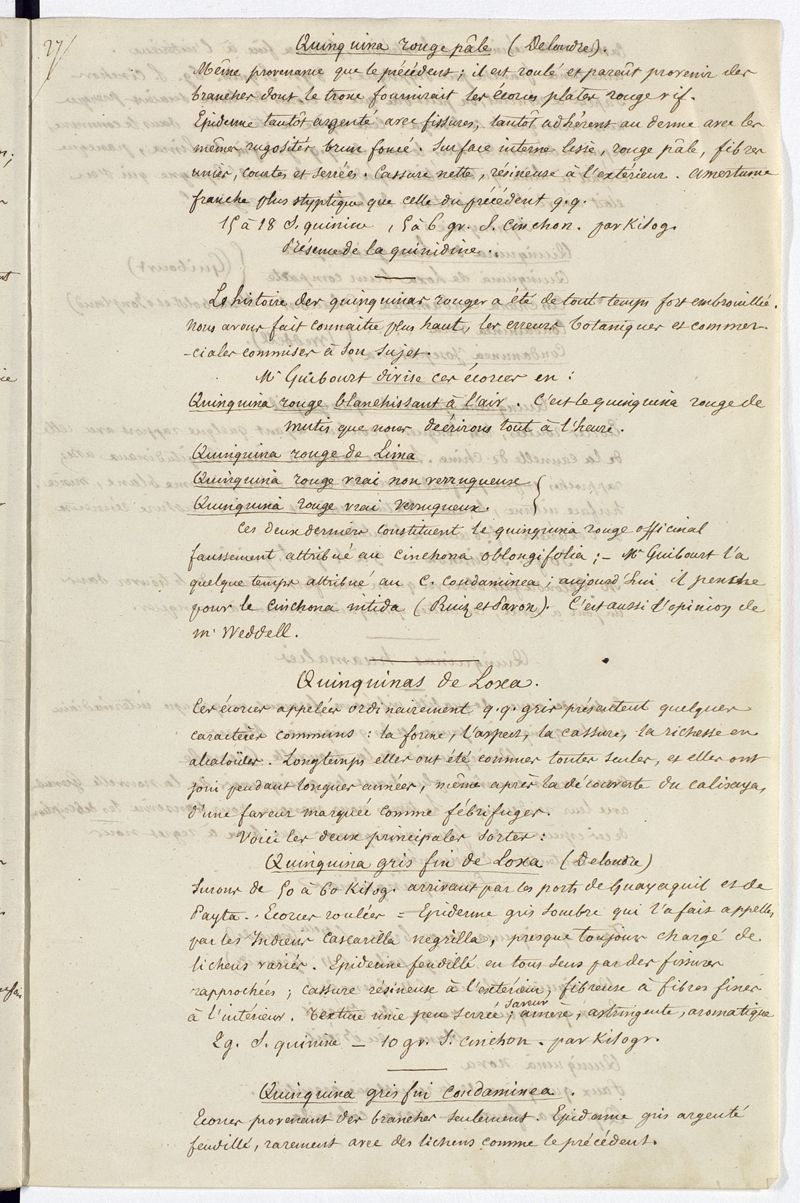 27/
Quinquina rouge pâle (Delondre).
Même provenance que le précédent ; il est roulé et paraît provenir des
branches dont le tronc fournirait les écorces plates rouge vif.
Epiderme tantôt argenté avec fissures, tantôt adhérent au derme avec les
mêmes rugosités brun foncé. Surface interne lisse, rouge pâle, fibres
unies, courtes et serrées. Cassure nette, résineuse à l'extérieur. Amertume
franche plus styptique que celle du précédent q.q.
15 à 18 S. quinine, 5 à 6 gr. S. cinchon. par Kilog.
Présence de la quinidine.
L'histoire des quinquinas rouges a été de tout temps fort embrouillée.
Nous avons fait connaître plus haut, les erreurs botaniques et commer-
-ciales commises à son sujet.
Mr Guibourt divise ces écorces en :
Quinquina rouge blanchissant à l'air. C'est le quinquina rouge de
Mutis que nous décrirons tout à l'heure.
Quinquina rouge de Lima
Quinquina rouge vrai non verruqueux }
Quinquina rouge vrai verruqueux.
Ces deux derniers constituent le quinquina rouge officinal
faussement attribué au cinchona oblongifolia ; – Mr Guibourt l'a
quelque temps attribué au C. Condaminea ; aujourd'hui il penche
pour le cinchona nitida (Ruiz et Pavon). C'est aussi l'opinion de
Mr Weddell.
Quinquinas de Loxa.
Ces écorces appelées ordinairement q.q. gris présentent quelques
caractères communs : la forme, l'aspect, la cassure, la richesse en
alcaloïdes. Longtemps elles ont été connues toutes seules, et elles ont
joui pendant longues années, même après la découverte du calisaya,
d'une faveur marquée comme fébrifuges.
Voici les deux principales sortes :
Quinquina gris fin de Loxa (Delondre)
Surons de 50 à 60 Kilog. arrivant par les ports de Guayaquil et de
Payta. Ecorces roulées = Epiderme gris sombre qui l'a fait appeller
par les Indiens Cascarilla negrilla, presque toujours chargé de
lichens variés. Epiderme fendillé en tous sens par des fissures
rapprochées ; cassure résineuse à l'extérieur, fibreuse à fibres fines
à l'intérieur. Texture unie peu serrée ; saveur amère, astringente, aromatique
2g. S. quinine – 10 gr. S. cinchon. par Kilogr.
Quinquina gris fin condaminea.
Ecorces provenant des branches seulement. Epiderme gris argenté
fendillé, rarement avec des lichens comme le précédent.